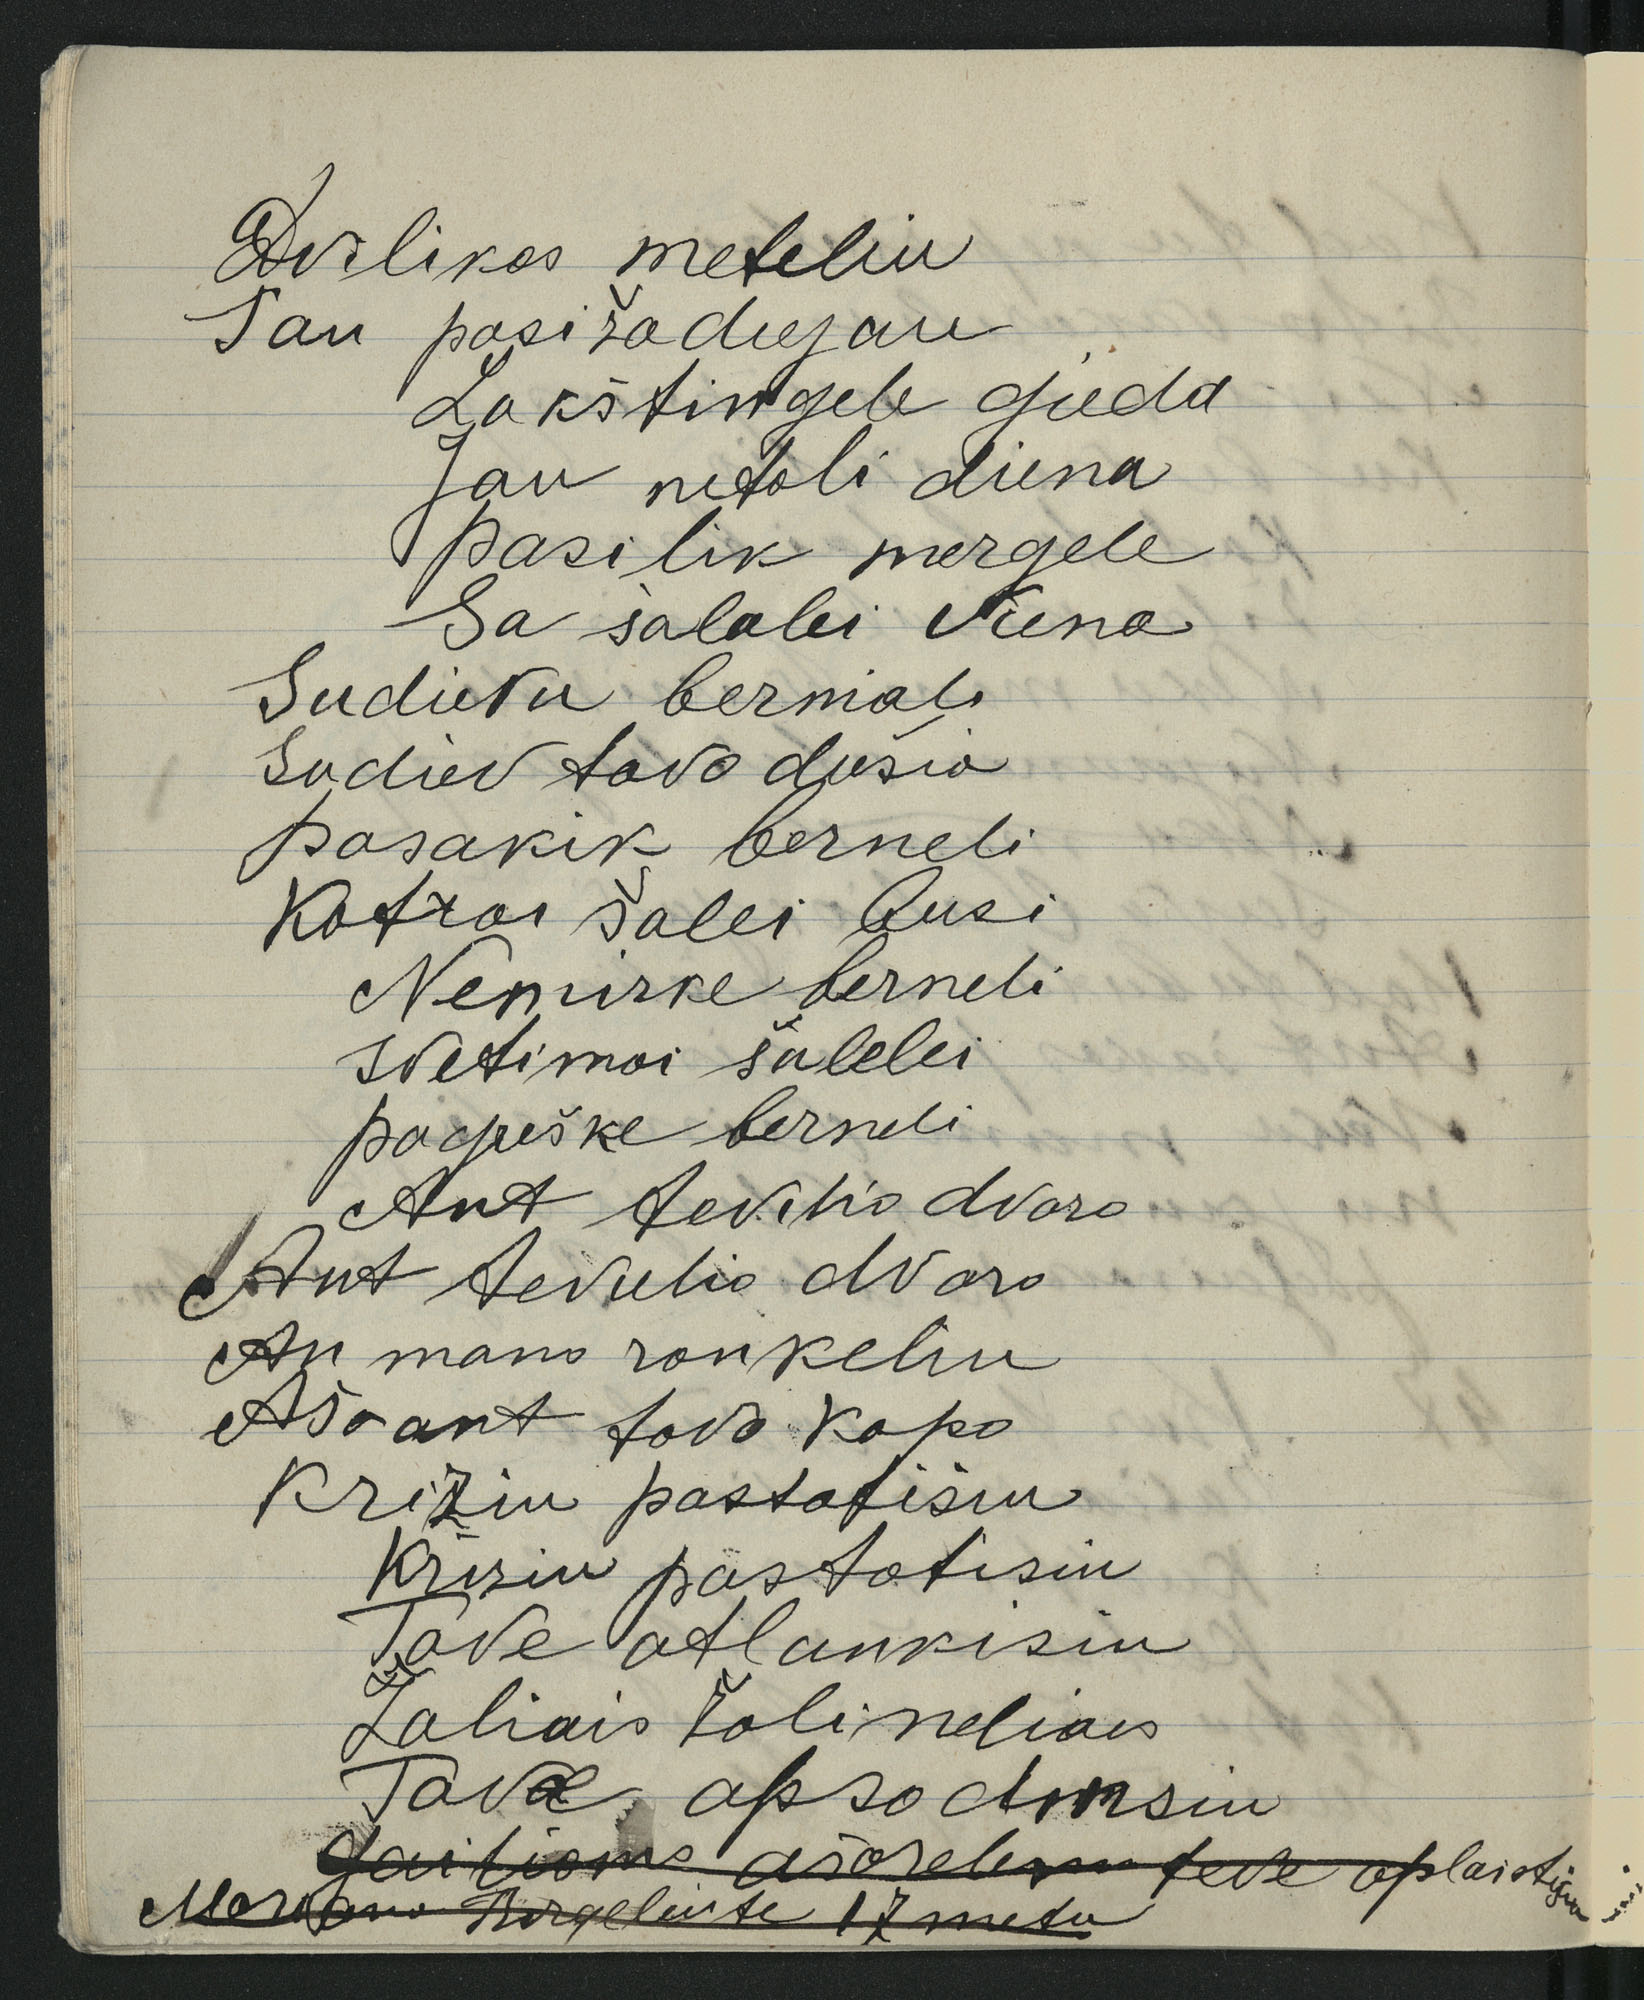 Dvilikos meteliu
Tau pasižadiejau
Lakštingele gieda
Jau netoli diena
pasilik mergele
Sa šalalei viena
Sudievu berniali
Sudiev tavo dušia
pasakik berneli
Katrai šalei busi
Nemirke berneli
svetimai šalelei
pagriške berneli
Ant tevelio dvaro
Ant tevelio dvaro
An mano rankeliu
Aš ant tavo kapo
Križiu pastatišiu
Križiu pastatisiu
Tave atlankisiu
Žaliais žolineliais
Tave apsodinsiu
Gailioms ašarelems teve aplaistisiu
Marijona Birgeliute 17 metu